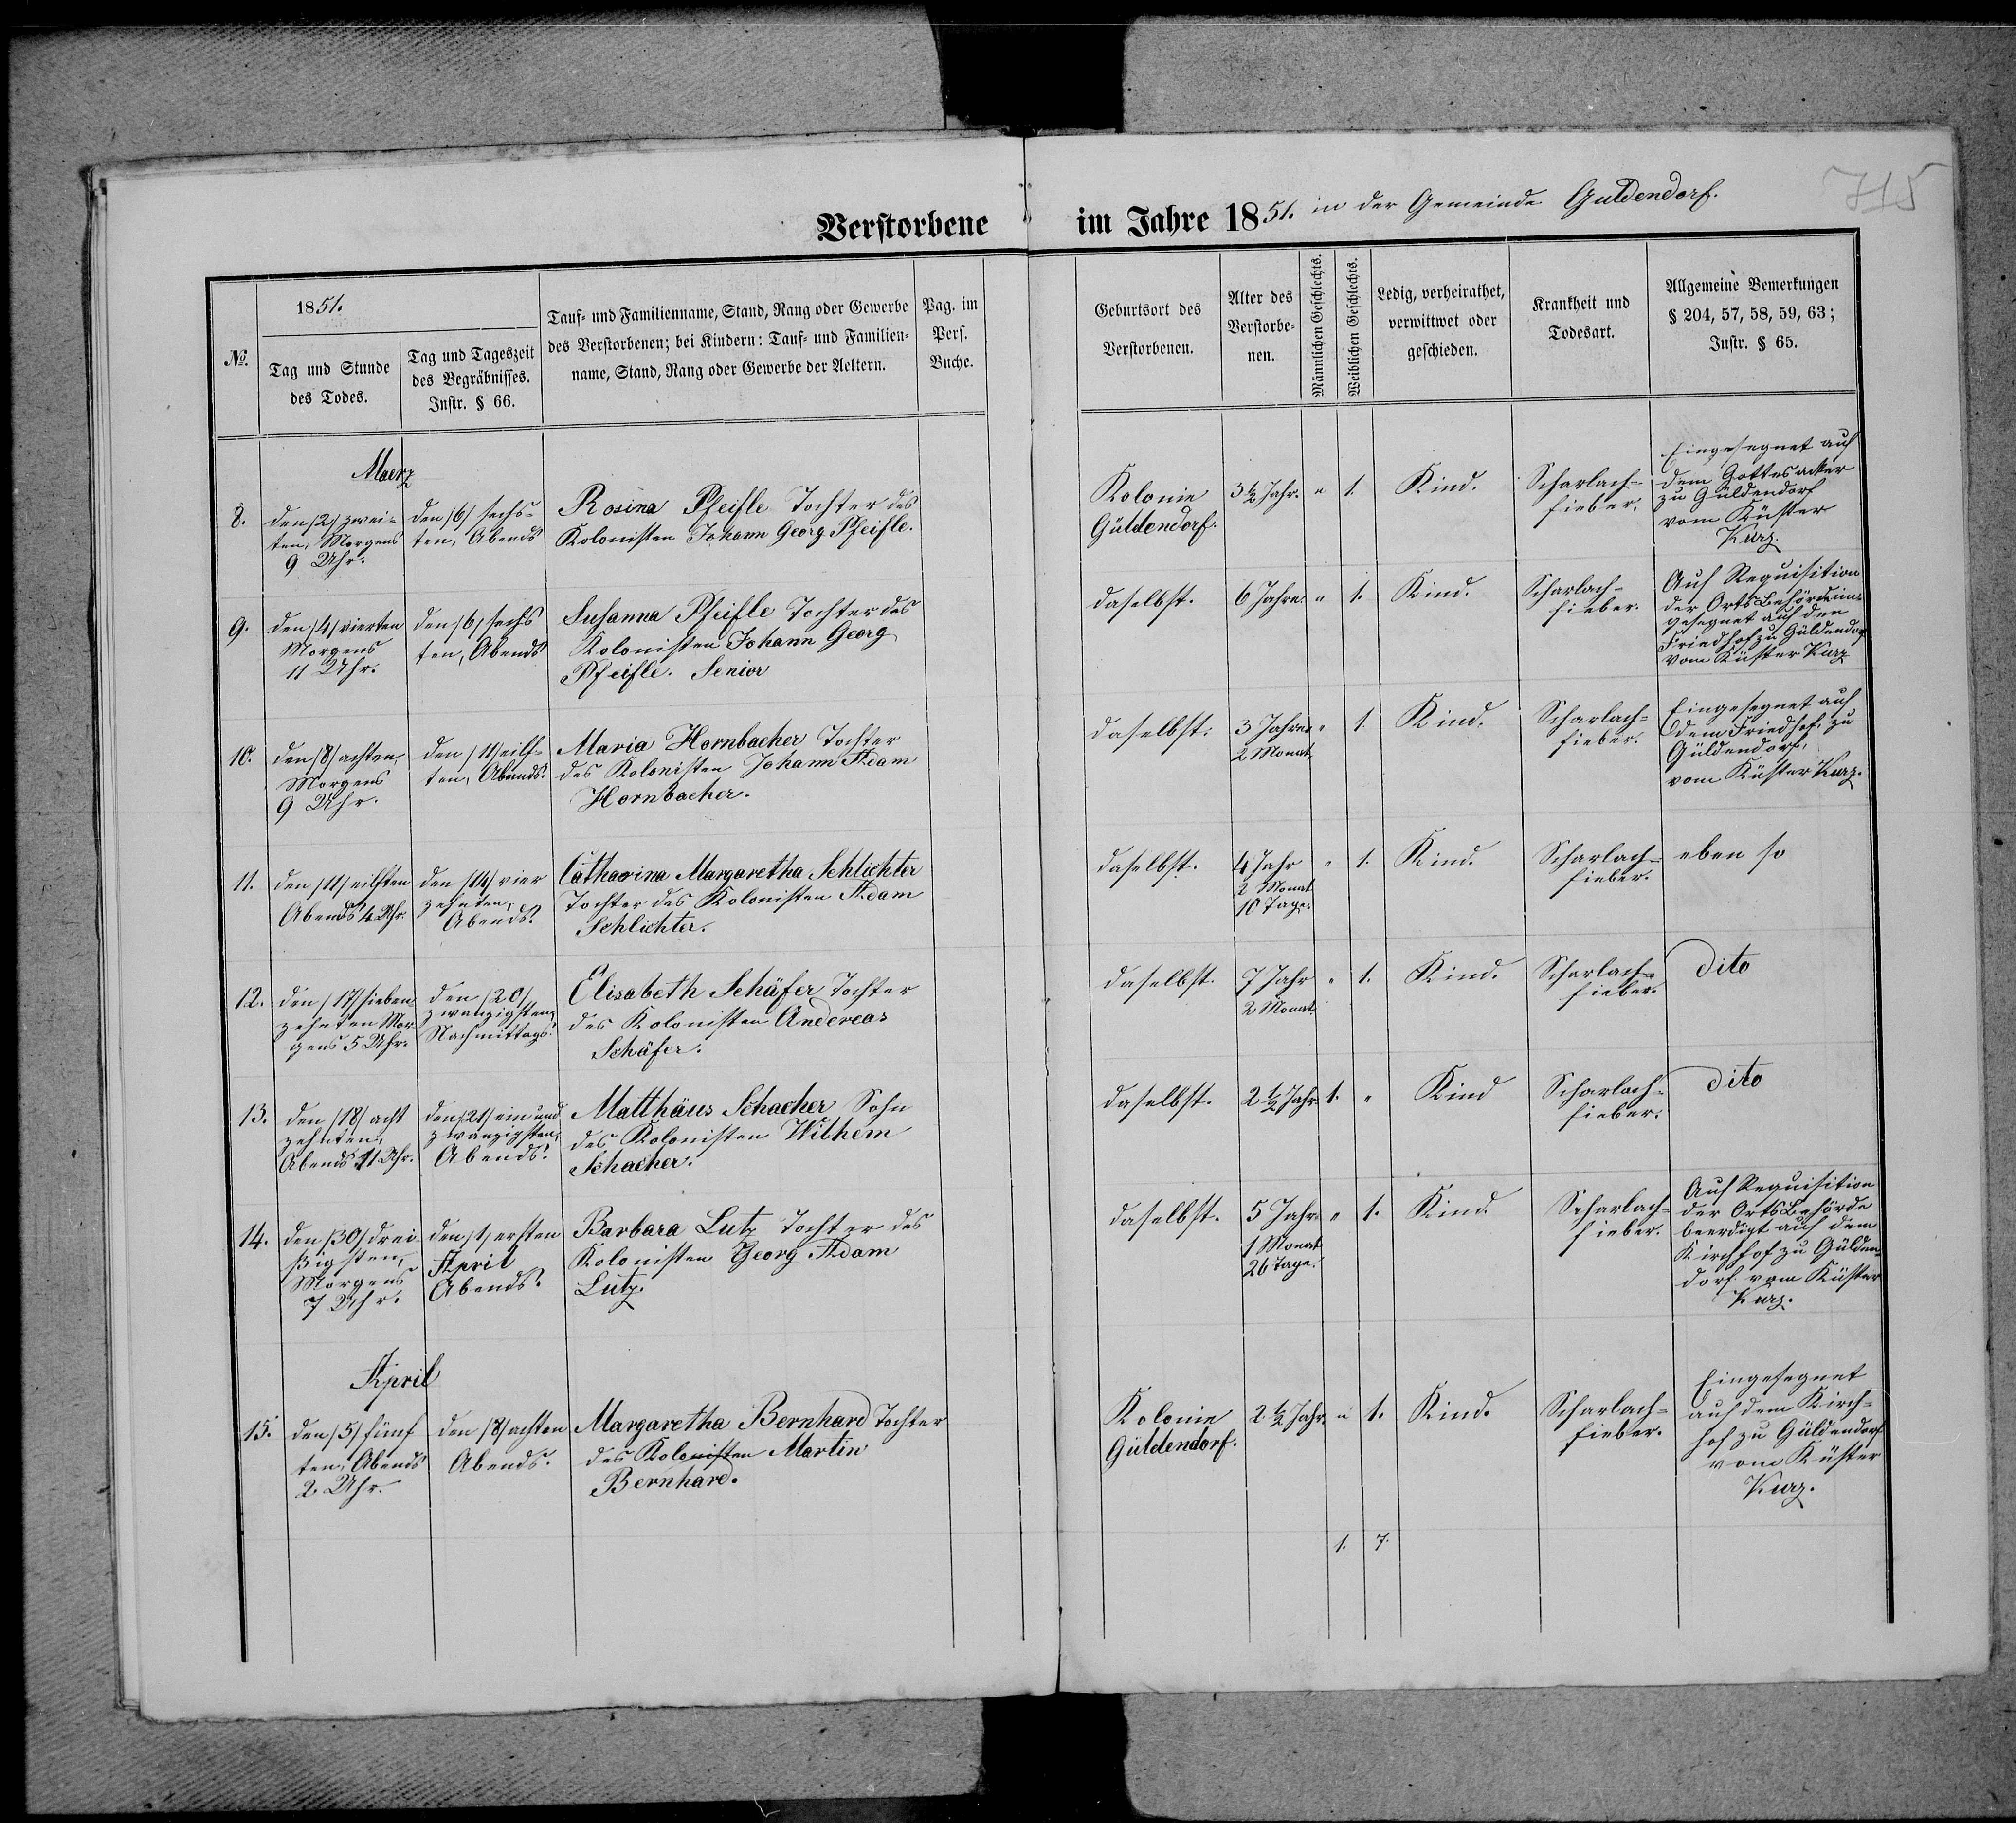 715
Verstorbene im Jahre 1851. in der Gemeinde Güldendorf.
№.
1851.
Tag und Stunde
des Todes.
Tag und Tageszeit
des Begräbnisses.
Instr. § 66.
Tauf- und Familienname, Stand, Rang oder Gewerbe
des Verstorbenen; bei Kindern: Tauf- und Familien-
name, Stand, Rang oder Gewerbe der Aeltern.
Pag. im
Pers.
Buche.
Geburtsort des
Verstorbenen.
Alter des
Verstorbe-
nen.
Männlichen Geschlechts.
Weiblichen Geschlechts.
Ledig, verheirathet,
verwittwet oder
geschieden.
Krankheit und
Todesart.
Allgemeine Bemerkungen
§ 204, 57, 58, 59, 63;
Instr. § 65.
Maerz
8.
den /2/ zwei-
ten, Morgens
9 Uhr.
den /6/ sechs-
ten, Abends
Rosina Pfeifle Tochter des
Kolonisten Johann Georg Pfeifle.
Kolonie
Güldendorf.
3 1/2 Jahr. " 1.
Kind.
Scharlach-
fieber.
Eingesegnet auf
dem Gottesacker
zu Güldendorf
vom Küster
Kurz.
9.
den /4/ vierten
Morgens
11 Uhr.
den /6/ sechs
ten, Abends
Susanna Pfeifle Tochter des
Kolonisten Johann Georg
Pfeifle. Senior
daselbst.
6 Jahre " 1.
Kind.
Scharlach-
fieber.
Auf Requisition
der OrtsBehörde ein-
gesegnet auf den
Friedhof zu Güldendorf
vom Küster Kurz
10.
den /8/ achten,
Morgens
9 Uhr.
den /11/ eilf-
ten, Abends.
Maria Hornbacher Tochter
des Kolonisten Johann Adam
Hornbacher.
daselbst.
3 Jahre " 1.
2 Monat
Kind.
Scharlach-
fieber.
Eingesegnet auf
dem Friedhof zu
Güldendorf,
vom Küster Kurz.
11.
den /11/ eilften
Abends 4 Uhr.
den /14/ vier
zehnten,
Abends.
Catharina Margaretha Schlichter
Tochter des Kolonisten Adam
Schlichter.
daselbst.
4 Jahr " 1.
2 Monat
10 Tage.
Kind.
Scharlach-
fieber.
eben so
12.
den /17/ sieben
zehnten Mor-
gens 5 Uhr.
den /20/
zwanzigsten,
Nachmittags.
Elisabeth Schäfer Tochter
des Kolonisten Andereas
Schäfer.
daselbst.
7 Jahr " 1.
2 Monat
Kind.
Scharlach-
fieber.
dito
13.
den /18/ acht
zehnten,
Abends 11 Uhr.
den /21/ ein und
zwanzigsten,
Abends.
Matthäus Schacher Sohn
des Kolonisten Wilhem
Schacher.
daselbst.
2 1/2 Jahr 1. "
Kind
Scharlach-
fieber.
dito
14.
den /30/ drei
ßigsten,
Morgens
7 Uhr.
den /1/ ersten
April
Abends.
Barbara Lutz Tochter des
Kolonisten Georg Adam
Lutz.
daselbst.
5 Jahr " 1.
1 Monat
26 Tage.
Kind.
Scharlach-
fieber.
Auf Requisition
der OrtsBehörde
beerdigt auf dem
Kirchhof zu Gülden
dorf vom Küster
Kurz.
April
15.
den /5/ fünf
ten, Abends
2 Uhr.
den /8/ achten
Abends.
Margaretha Bernhard Tochter
des Kolonisten Martin
Bernhard.
Kolonie
Güldendorf.
2 1/2 Jahr " 1.
Kind.
Scharlach-
fieber.
Eingesegnet
auf dem Kirch-
hof zu Güldendorf
vom Küster
Kurz.
1. 7.